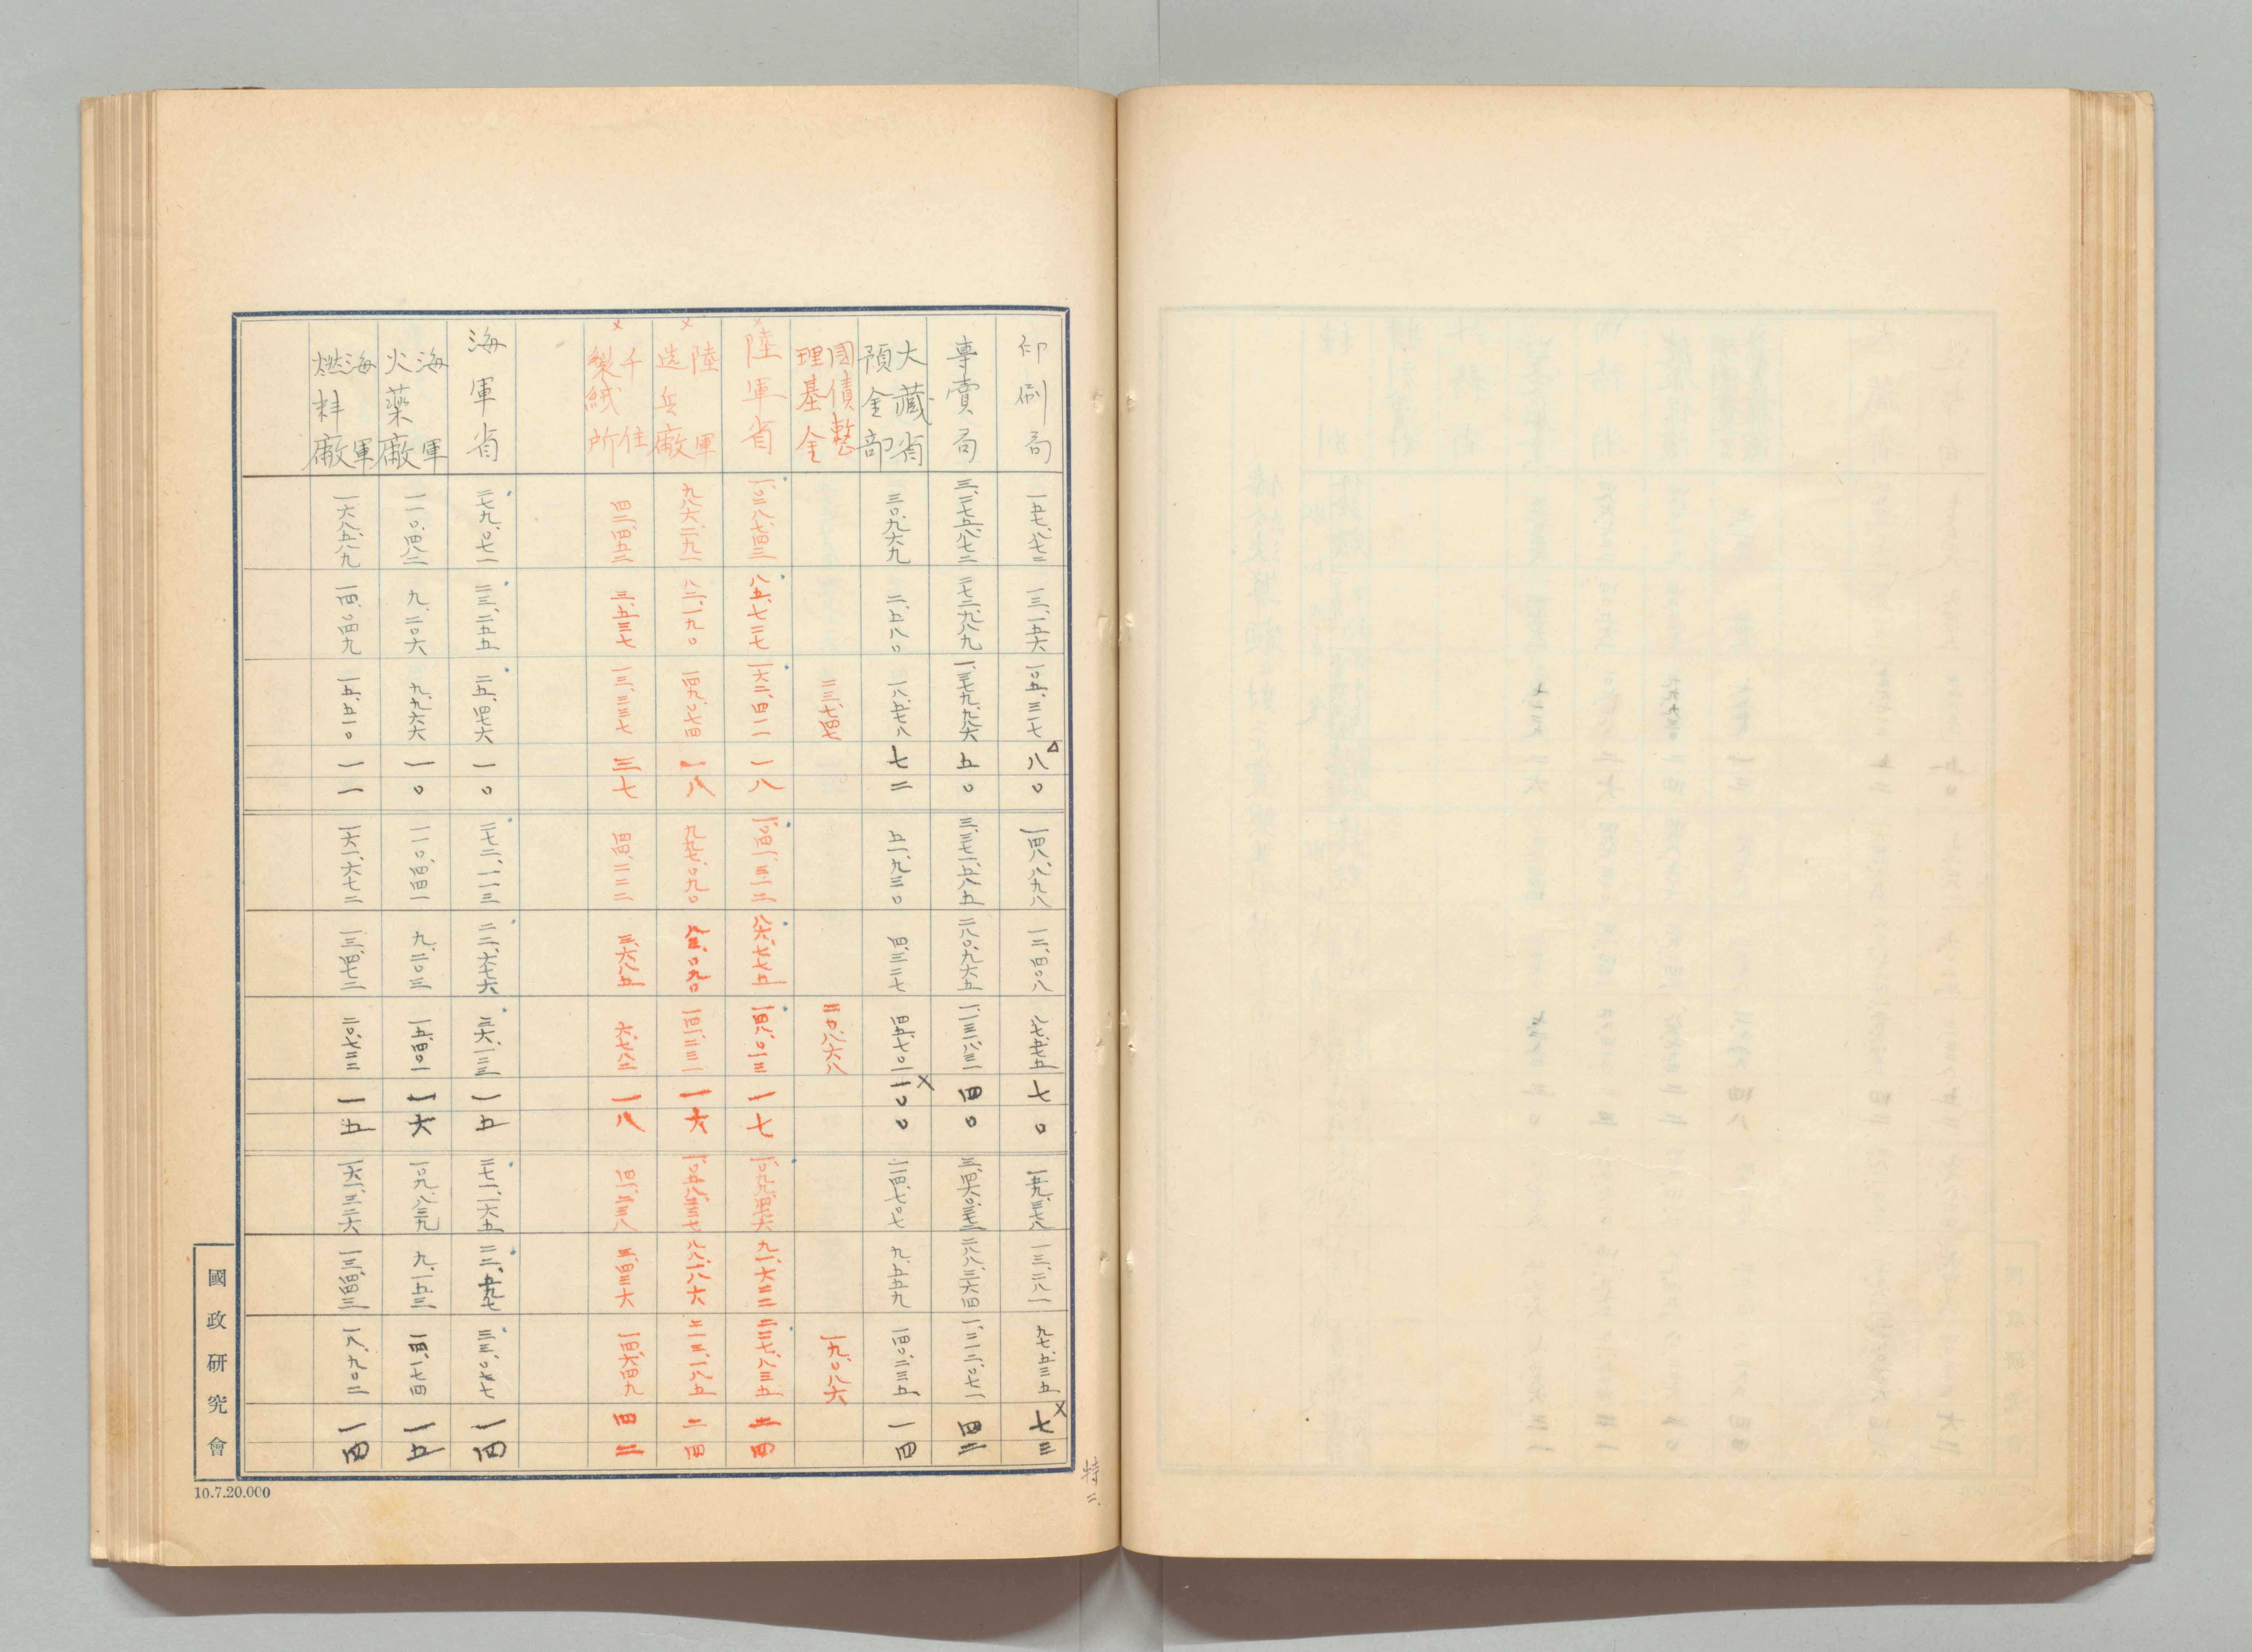 印刷局 一五七、八七二 一三、一五六 一〇五、三一七 △八〇 一四八、八九八 一二、四〇八 八七、七七五 七〇 一五九、三七八 一三、二八一 九七、五三五 ×七三
専賣局 三、二七五、八七二 二七二、九八九 一、三七九、九八六 五〇 三、三七一、五八五 二八〇、九六五 四〇 三、四六〇、三七二 二八八、三六四 一、二一二、〇七一 四二
大藏省預金部 三〇、九六九 二、五八〇 一八、五七八 七二 五一、九三〇 四、三二七 四五、七〇一 ×一〇〇 一一四、七〇七 九、五五九 一四〇、二三五 一四
國債整理基金 二三、七四七 二〇、八六八 一九、〇八六
×陸軍省 一、〇二八、七四三 八五、七二七 一六二、四一一 一八 一、〇四一、三一二 八六、七七五 一四八、〇一三 一七 一、〇九九、四七六 九一、六二二 二二七、八三五 二四
×陸軍造兵廠 九八六、二九一 八二、一九〇 一四九、〇七四 一八 九九七、〇九〇 八三、〇九〇 一四一、二三一 一六 一、〇五八、二三七 八八、一八六 二一三、一八五 二四
×千住製絨所 四二、四五二 三、五三七 一三、三三七 三七 四四、二二二 三、六八五 六、七八二 一八 四一、二三八 三、四三六 一四、六四九 四二
海軍省 二七九、〇七一 二三、二五五 二五、四七六 一〇 二七二、一一三 二二、六七六 三六、一三三 一五 二七一、一六五 二二、五九七 三三、〇七七 一四
海軍火藥廠 一一〇、四八二 九、二〇六 九、九六六 一〇 一一〇、四四一 九、二〇三 一五、四〇一 一六 一〇九、八三九 九、一五三 一四、一七四 一五
海軍燃料廠 一六八、五八九 一四、〇四九 一五、五一〇 一一 一六一、六七二 一三、四七二 二〇、七三二 一五 一六一、三二六 一三、四四三 一八、九〇二 一四
特二、
國政研究會
10.7.20.000